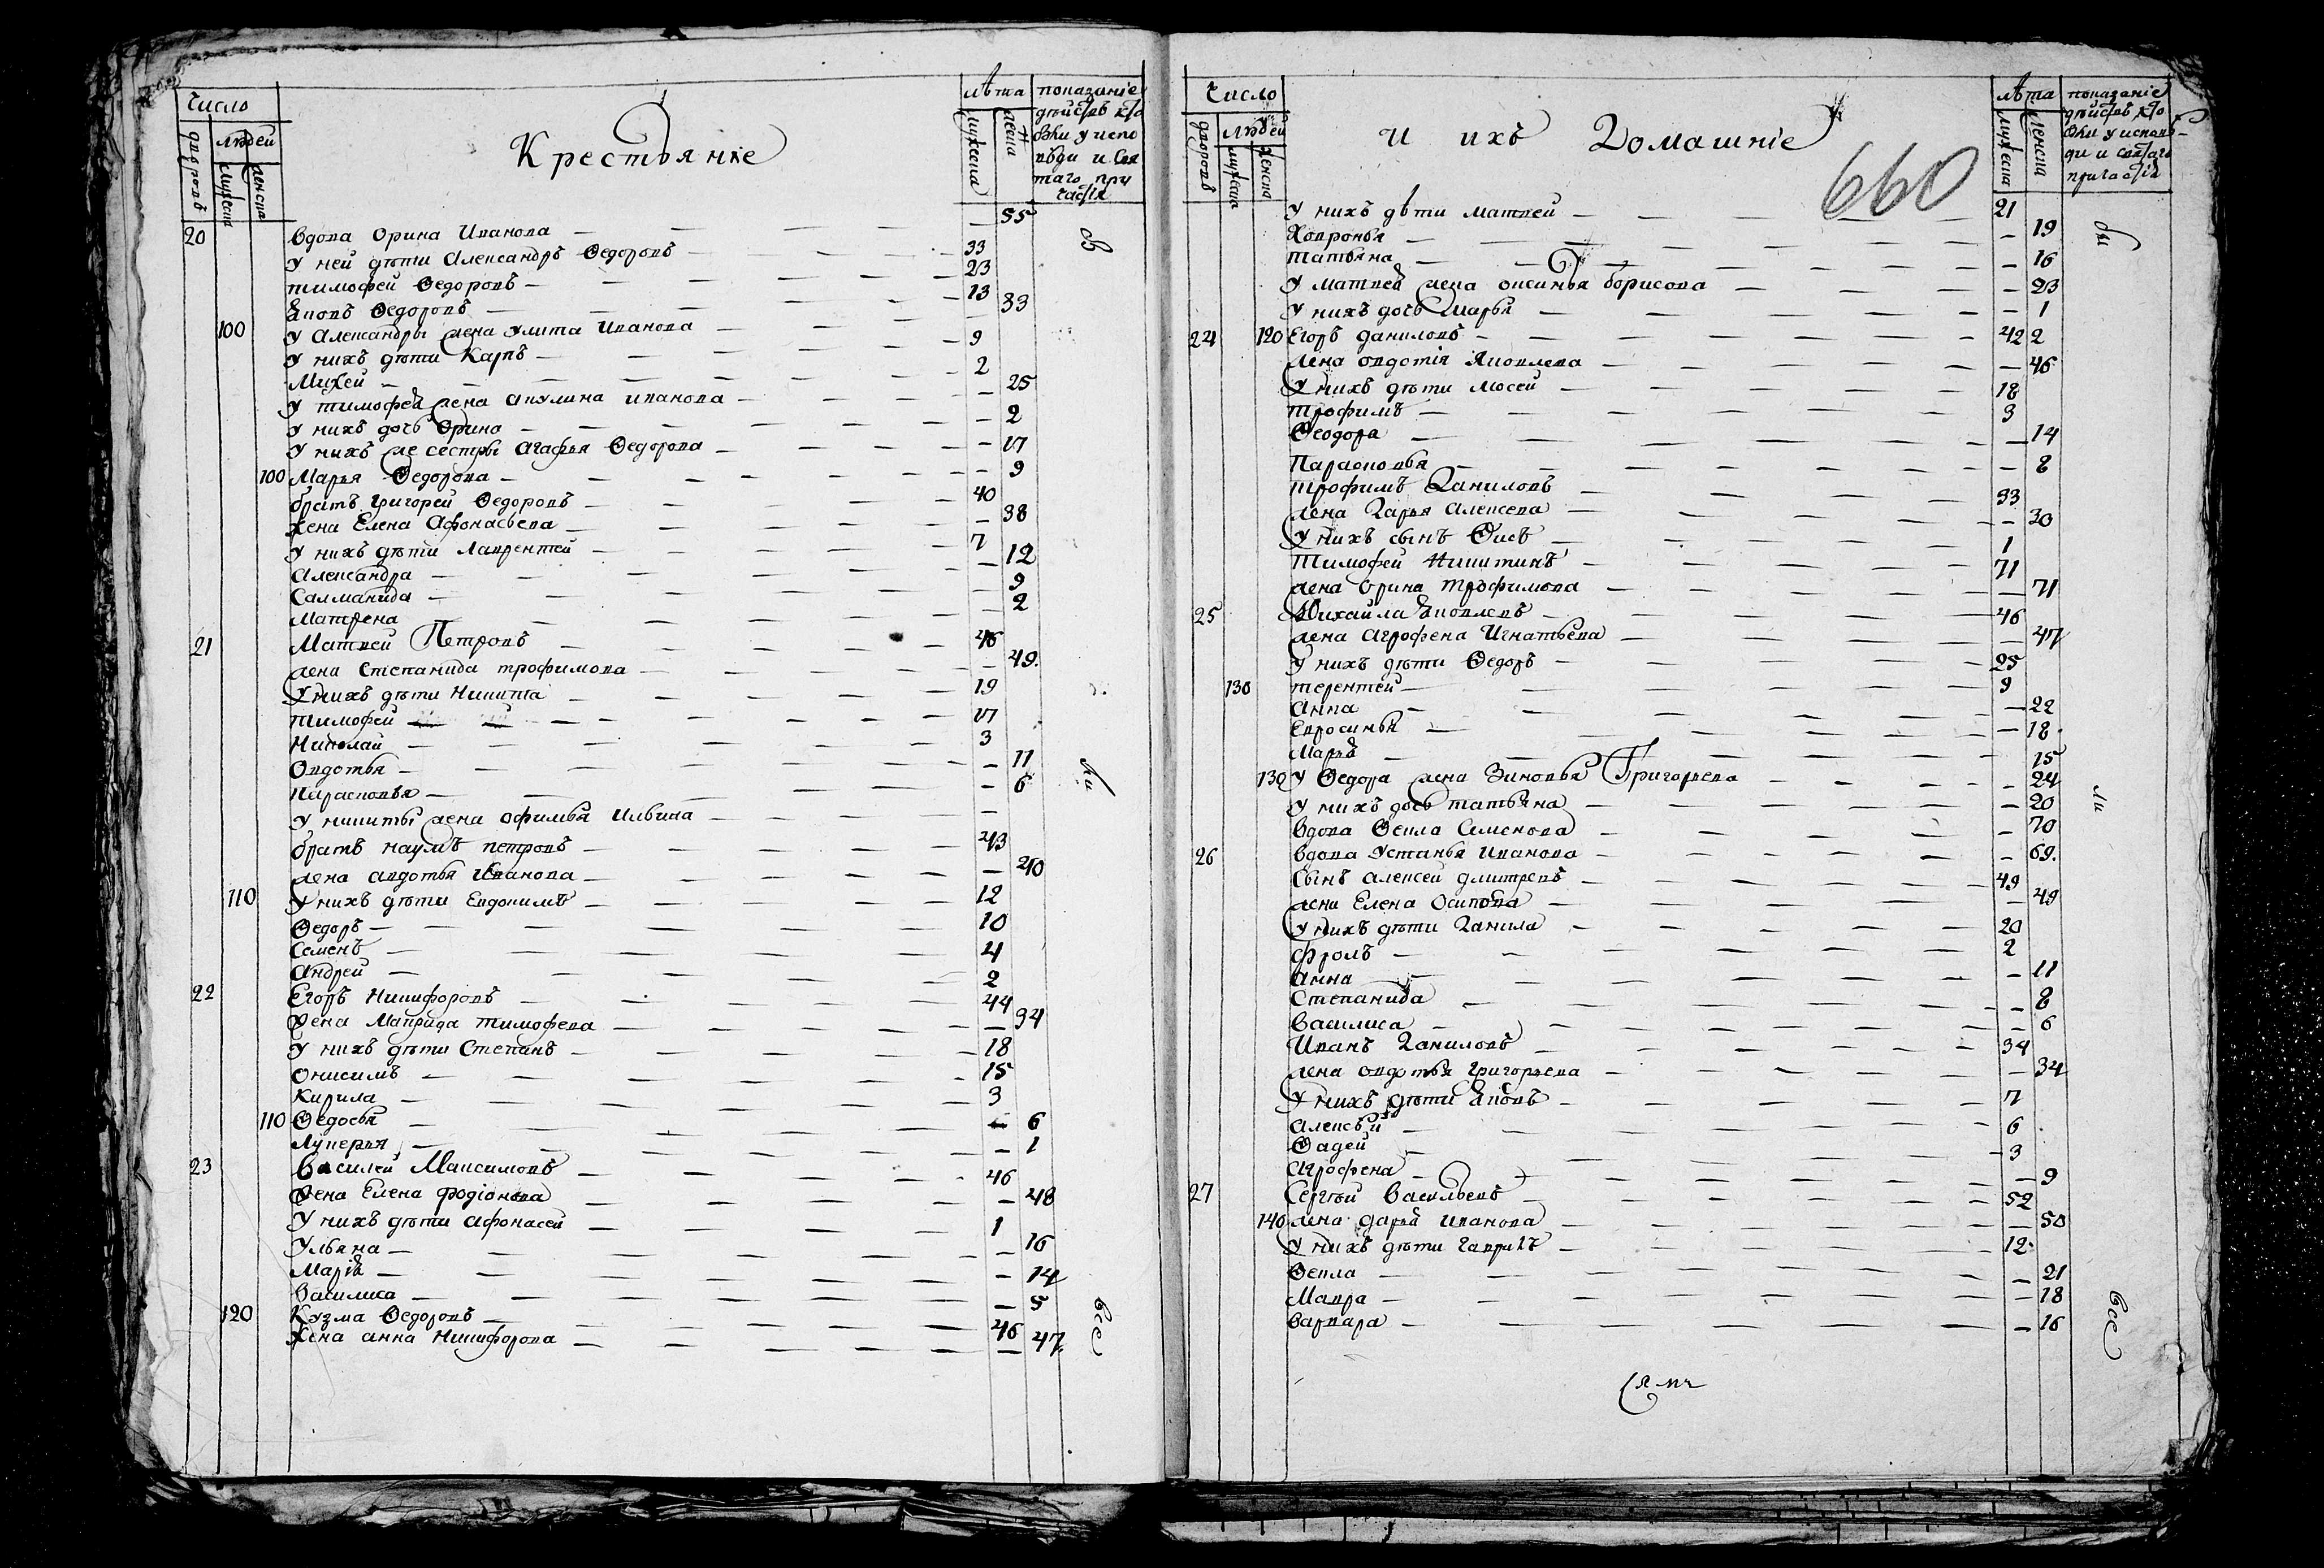 Число
людей
дворовъ
мужеска
женска
Крестьяніе
лѣта
мужеска
женска
показаніе
дѣйствъ кто
былъ у испо
вѣди и свя
таго при
частія
20 вдова Орина Иванова — 55
У ней дѣти Александръ Ѳедоровъ — 33
тимофей Ѳедоровъ — 23
Яковъ Ѳедоровъ — 13
100 У Александры жена Улита Иванова — 33
У нихъ дѣти Карпъ — 9
Михей — 2
У тимофея жена акулина иванова — 25
У нихъ дочь Орина — 2
У нихъ же сестры агафья Ѳедорова — 17
100 Марья Ѳедорова — 9
братъ григорей Ѳедоровъ — 40
жена Елена Афонасьева — 38
У нихъ дѣти Лаврентей — 7
александра — 12
Саломанида — 9
Матрена — 2
21 Матвей Петровъ — 46
жена Степанида трофимова — 49
У нихъ дѣти Никита — 19
тимофей — 17
Николай — 3
Овдотья — 11
Парасковья — 6
У никиты жена офимья Ильина —
братъ наумъ петровъ — 43
жена авдотья Иванова — 40
110 У нихъ дѣти Евдокимъ — 12
Ѳедоръ — 10
Семенъ — 4
андрей — 2
22 Егоръ Никифоровъ — 44
жена Маврида тимофева — 34
У нихъ дѣти Степанъ — 18
онисимъ — 15
Кирила — 3
110 Ѳедосья — 6
Лукерья — 1
23 Василей Максимовъ — 46
жена Елена фодіонова — 48
У нихъ дѣти афонасей — 1
Ульяна — 16
Марія — 14
василиса — 5
120 Кузма Ѳедоровъ — 46
жена анна Никифорова — 47
всѣ
Число
людей
дворовъ
мужеска
женска
И ихъ Домашніе
660
лѣта
мужеска
женска
показаніе
дѣйствъ кто
былъ у исповѣ-
ди и святаго
причастія
У нихъ дѣти матвей — 21
Ховронья — 19
татьяна — 16
У матвея жена оксинья борисова — 23
У нихъ дочь Марья — 1
24 120 Егоръ даниловъ — 42 2
жена овдотія Яковлева — 46
У нихъ дѣти мосей — 18
трофимъ — 3
Ѳеодора — 14
Парасковья — 8
трофимъ Даниловъ — 33
жена Дарья алексева — 30
У нихъ сынъ Ѳокъ — 1
Тимофей Никитинъ — 71
жена орина трофимова — 71
25 Михайла Яковлевъ — 46
жена агрофена Игнатьева — 47
У нихъ дѣти Ѳедоръ — 25
130 терентей — 9
анна — 22
Евросинья — 18
Марья — 15
130 У Ѳедора жена Зиновья Григорьева — 24
У нихъ дочь татьяна — 20
вдова Ѳекла Семенова — 70
26 вдова Устинья Иванова — 69
Сынъ алексей дмитревъ — 49
жена Елена Осипова — 49
У нихъ дѣти Данила — 20
фролъ — 2
анна — 11
Степанида — 8
василиса — 6
Иванъ Даниловъ — 34
жена овдотья григорьева — 34
У нихъ дѣти Яковъ — 7
алексѣй — 6
Ѳадей — 3
агрофена — 9
27 Сергѣй васильевъ — 52
140 жена дарья иванова — 50
У нихъ дѣти гаврилъ — 12
Ѳекла — 21
Мавра — 18
варвара — 16
всѣ